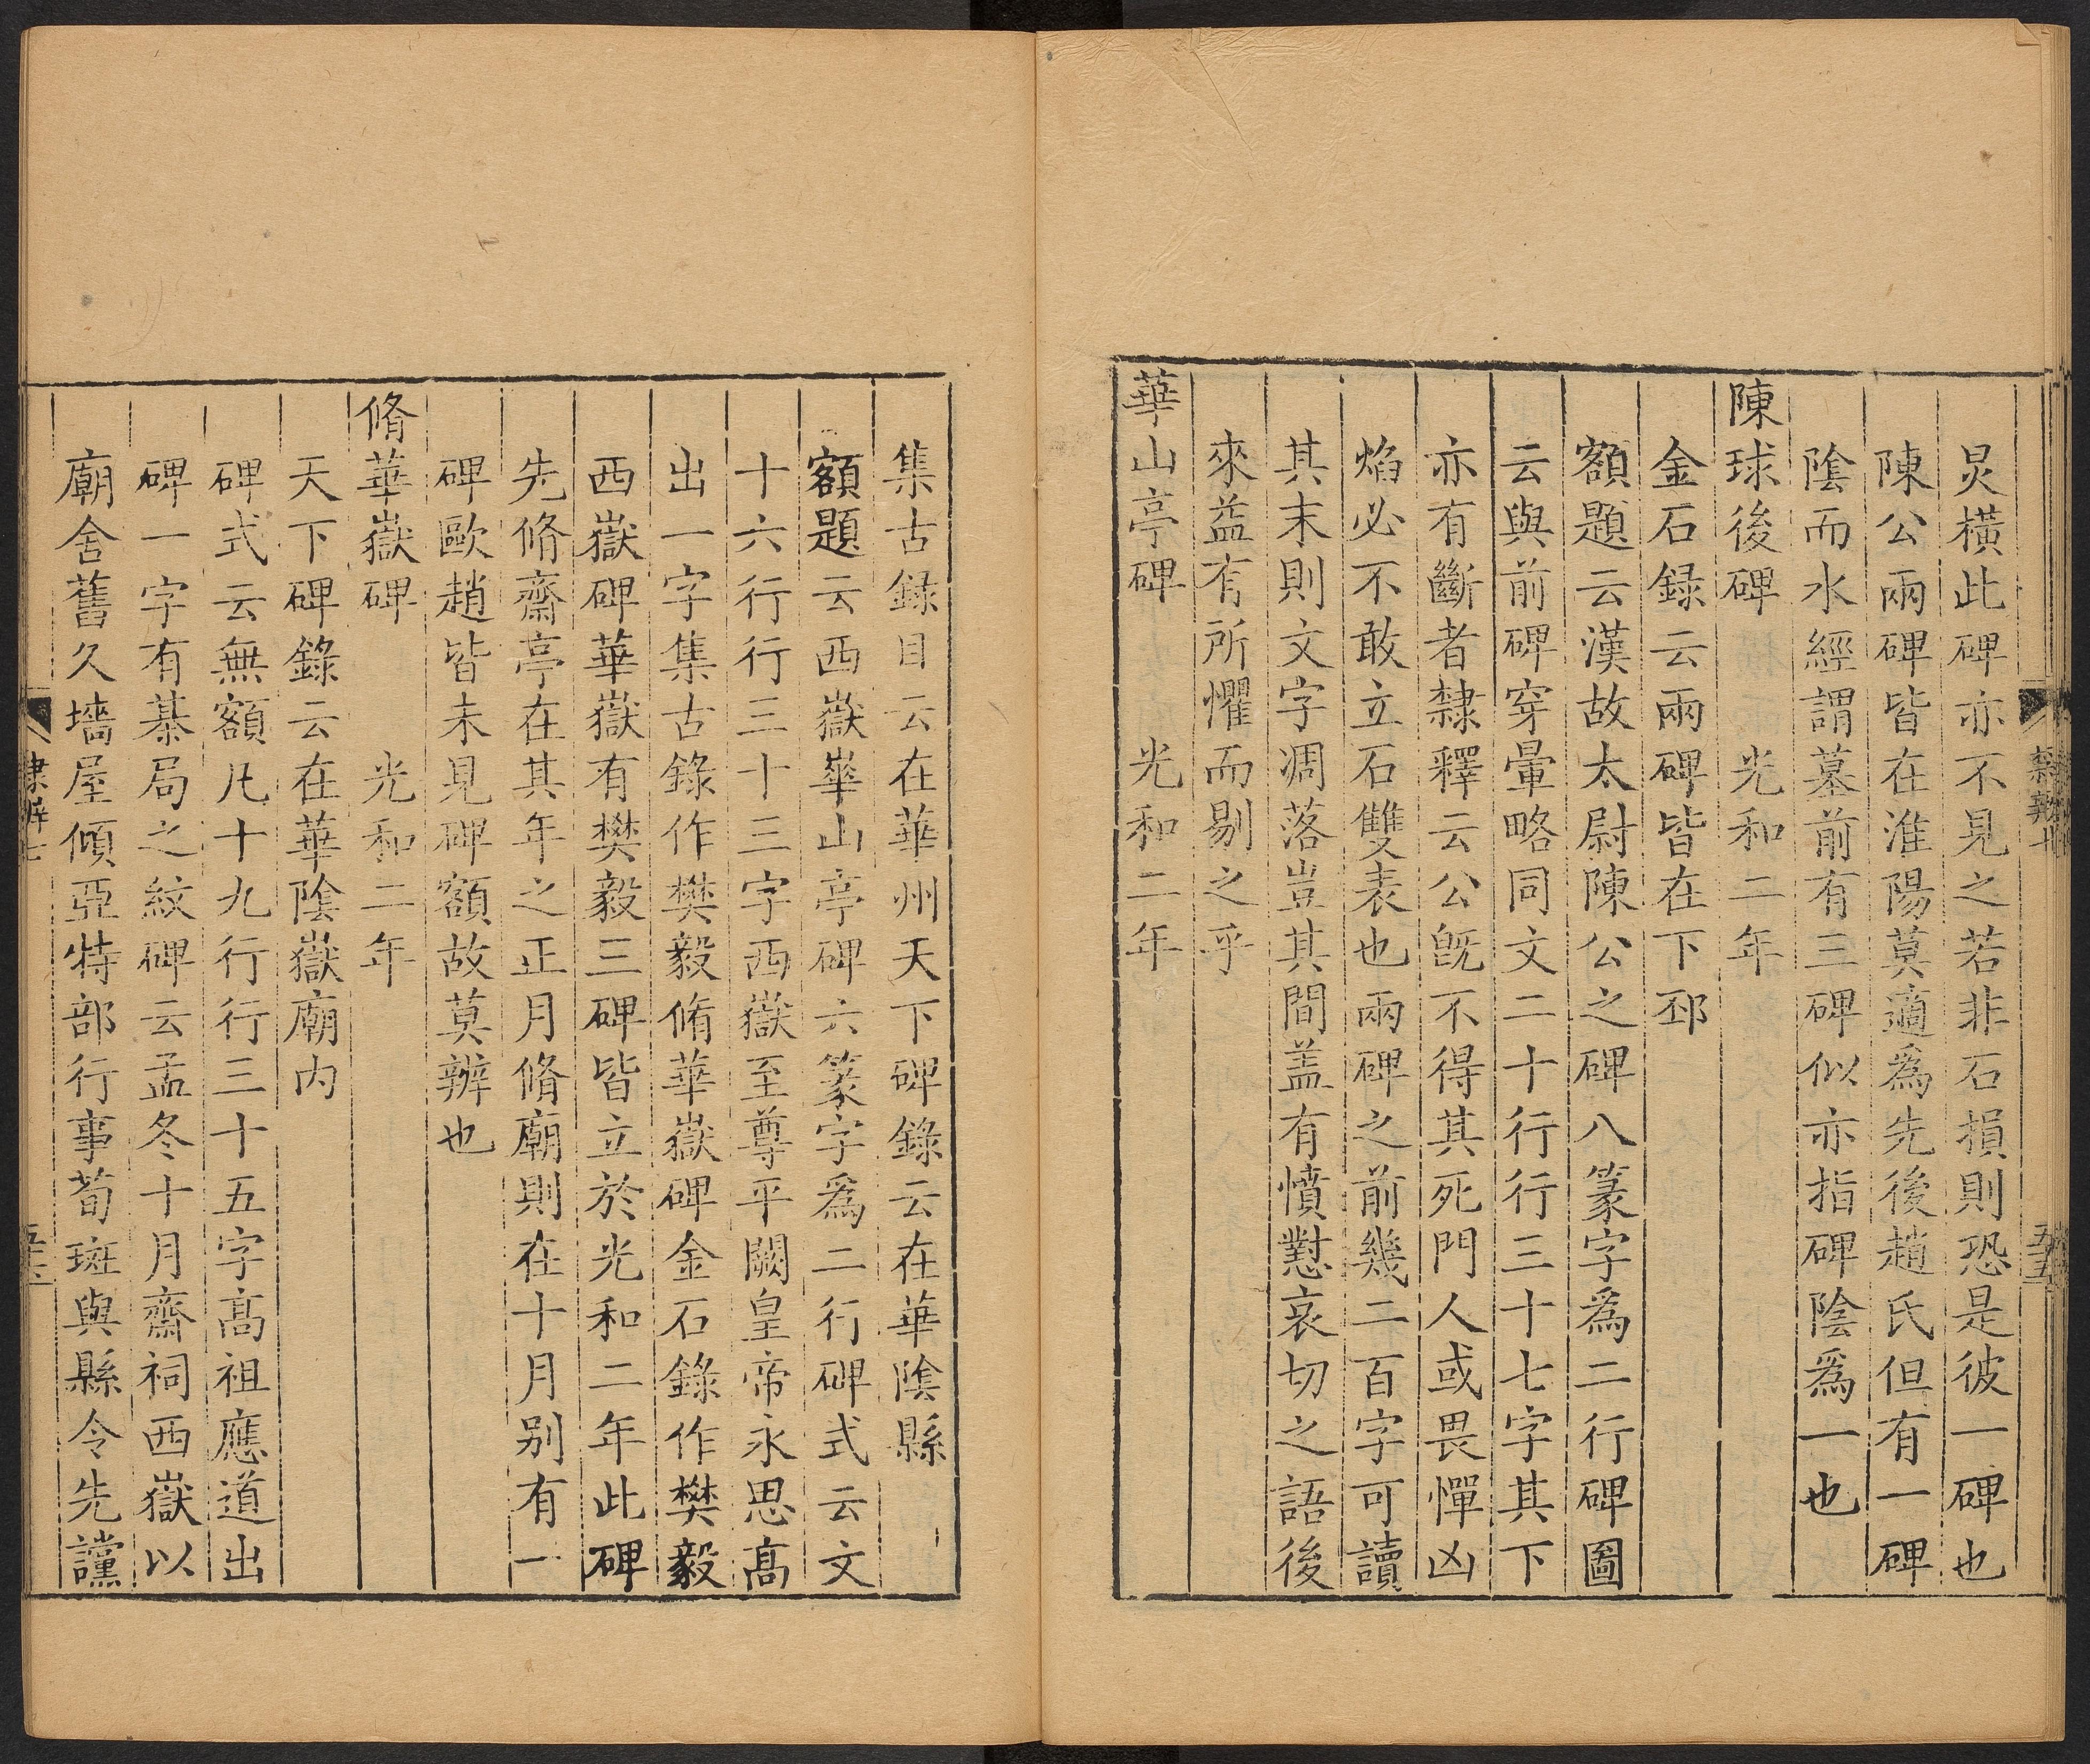 炅橫此碑亦不見之若非石損則恐是彼一碑也
陳公兩碑皆在淮陽莫適爲先後趙氏但有一碑
陰而水經謂墓前有三碑似亦指碑陰爲一也
陳球後碑 光和二年
金石録云兩碑皆在下邳
額題云漢故太尉陳公之碑八篆字爲二行碑圖
云與前碑穿暈略同文二十行行三十七字其下
亦有斷者隸釋云公旣不得其死門人或畏憚凶
焰必不敢立石雙表也兩碑之前幾二百字可讀
其末則文字凋落豈其間盖有憤懟哀切之語後
來益有所懼而剔之乎
華山亭碑 光和二年
集古録目云在華州天下碑錄云在華陰縣
額題云西嶽崋山亭碑六篆字爲二行碑式云文
十六行行三十三字西嶽至尊平闕皇帝永思髙
出一字集古錄作樊毅脩華嶽碑金石錄作樊毅
西嶽碑華嶽有樊毅三碑皆立於光和二年此碑
先脩齋亭在其年之正月脩廟則在十月别有一
碑歐趙皆未見碑額故莫辨也
脩華嶽碑 光和二年
天下碑錄云在華陰嶽廟内
碑式云無額凡十九行行三十五字髙祖應道出
碑一字有棊局之紋碑云孟冬十月齋祠西嶽以
廟舍舊久墻屋傾亞特部行事荀斑與縣令先讜